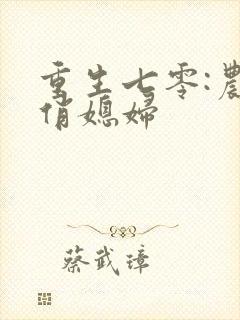 重生七零:農
俏媳婦
蔡武璋